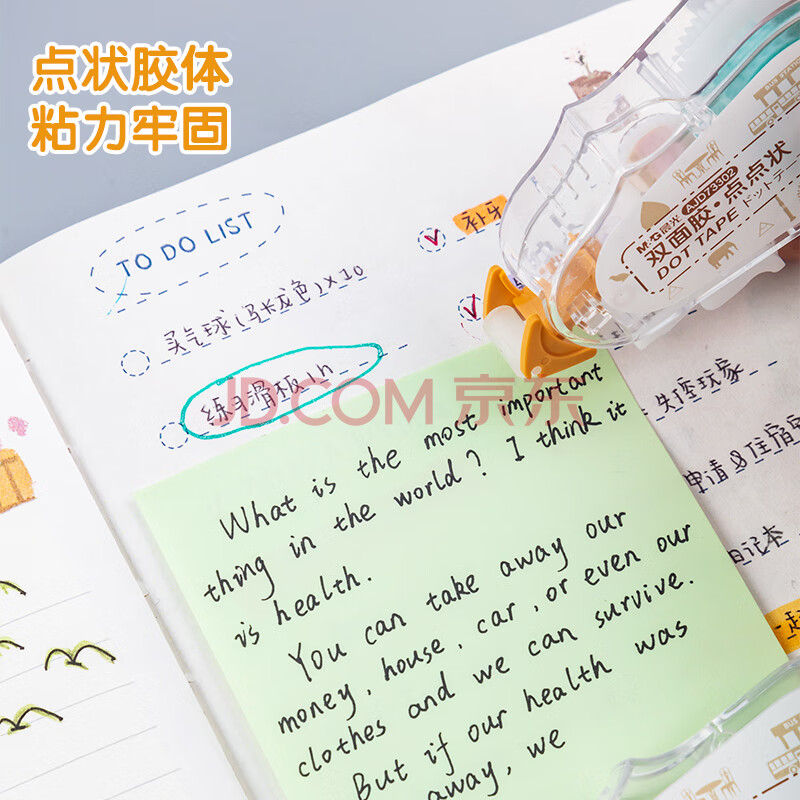 点状胶体
粘力牢固
TO DO LIST
买气球(马卡龙色)×10
练习滑板1h
补牙
JD.COM 京东
M&G晨光 AJD73302
双面胶·点点状
DOT TAPE ドットテー
What is the most important
thing in the world? I think it
is health.
You can take away our
money, house, car, or even our
clothes and we can survive.
But if our health was
away, we
玩家
申请&住宿
日记本
BUS